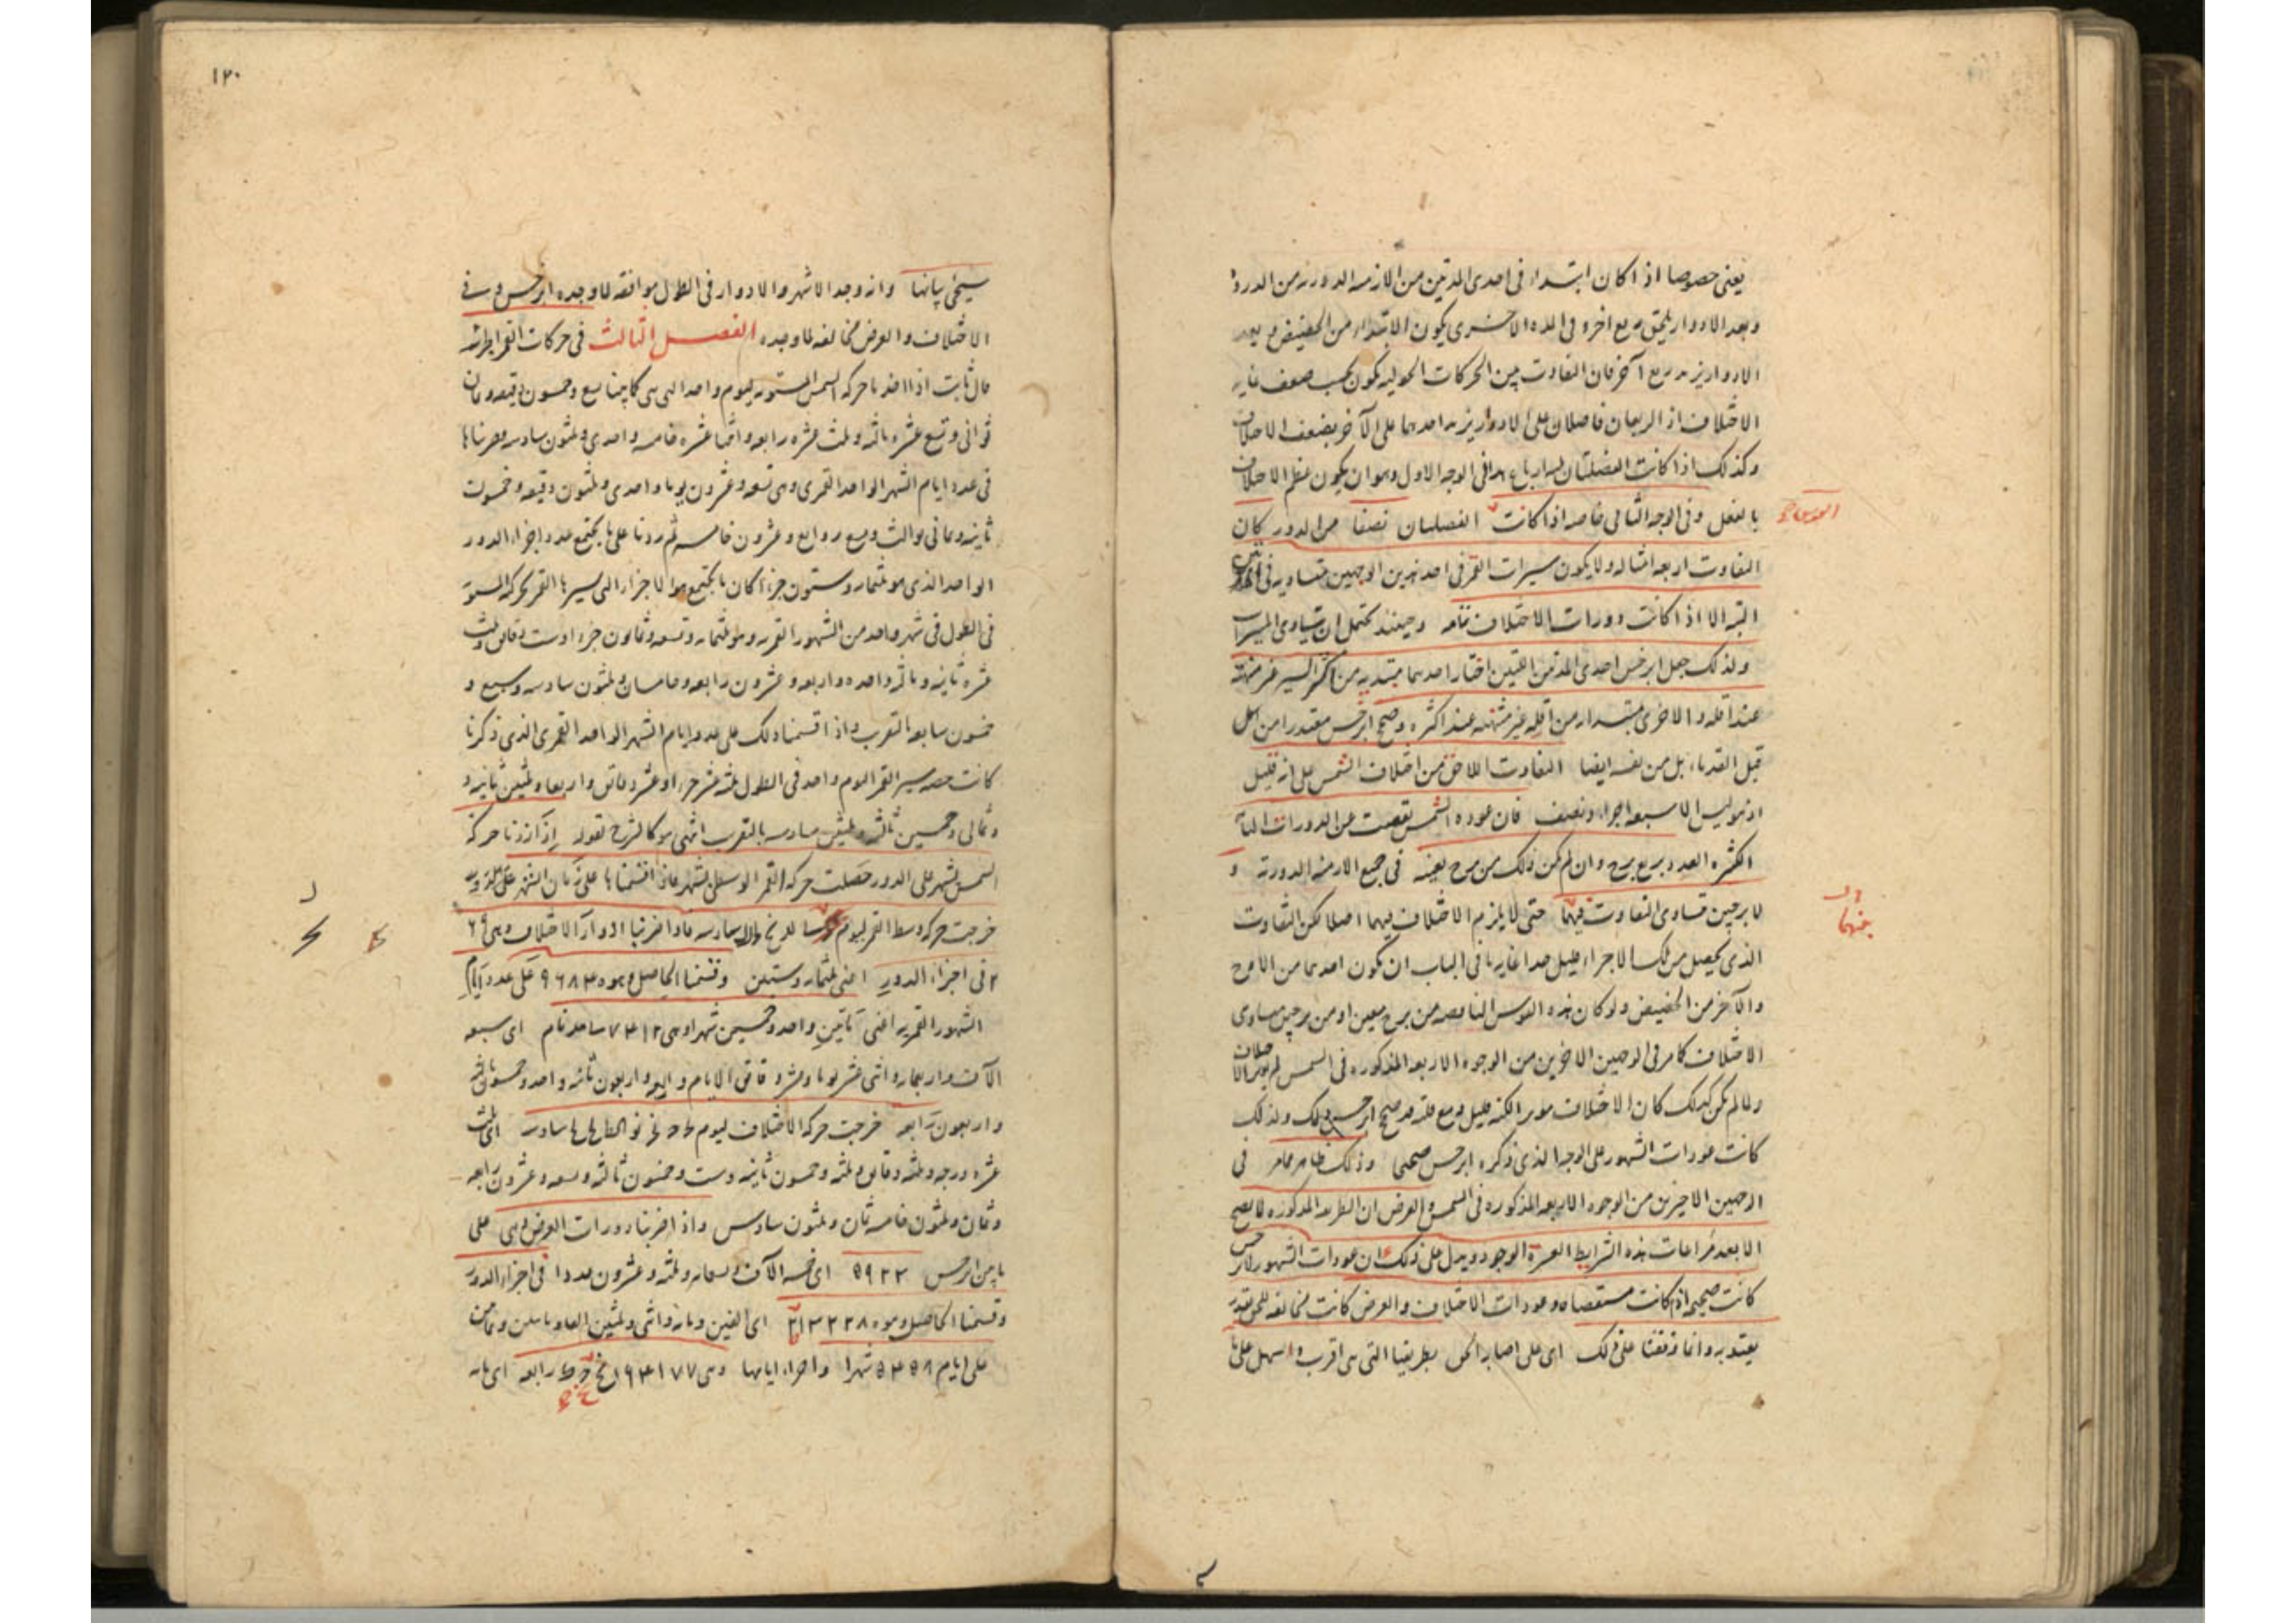 يعنى خصوصا اذا كان ابتداء فى احدى المدتين من الازمنة الدورية من الدروة
وبعد الادوار يلحق بربع اخر وفى المدة الاخرى يكون الابتداء من الحضيض وبعد
الادوار يزيد ربع آخر فان التفاوت بين الحركات الحولية يكون بحسب ضعف غاية
الاختلاف اذ الربعان فاصلان على الادوار يزيد احدهما على الآخر بضعف الاختلاف
وكذلك اذا كانت الفضلتان فى الوجه الاول وهو ان يكون عظم الاختلاف
بالفعل وفى الوجه الثانى خاصة اذا كانت الفضلتان نصفا من الدور كان
التفاوت اربعة امثاله ولا يكون مسيرات القمر فى احد هذين الوجهين متساوية فى
البتة الا اذا كانت دورات الاختلاف تامة وحينئذ يحتمل ان يتساوى المسيرات
ولذلك جعل ابرخس احدى المدتين اللتين اختار احدهما مبتدية من اكثر السير غير منتهية
عند اقله والاخرى مبتداة من اقله غير منتهية عند اكثره وصحح ابرخس مقدرا من
قبل القدماء بل من نفسه ايضا التفاوت اللاحق من اختلاف الشمس على انه قليل
اذ هو ليس الا سبعة اجزاء ونصف فان عودة الشمس نقصت عن الدورات التامة
الكثيرة العدد بربع برج وان لم يكن ذلك من برج بعينه فى جميع الازمنة الدورية و
لا برجين متساوى التفاوت فيهما حتى لا يلزم الاختلاف فيهما اصلا لكن التفاوت
الذى يحصل من تلك الاجزاء قليل جدا غاية ما فى الباب ان يكون احدهما من الاوج
والآخر من الحضيض ولو كان هذه القوس الناقصة من برج معين او من برجين متساوى
الاختلاف كما مر فى الوجهين الاخرين من الوجوه الاربعة المذكورة فى الشمس لم
ولما لم يكن كذلك كان الاختلاف موثرا لكنه قليل ومع قلته قد صحح ابرخس ذلك ولذلك
كانت عودات الشهور على الوجه الذى ذكره ابرخس صحيحا وذلك ظاهر مما مر فى
الوجهين الاخيرين من الوجوه الاربعة المذكورة فى الشمس والعرض ان الطريقة المذكورة لا يصح
الا بعد مراعات هذه الشرايط العسرة الوجود ويدل على ذلك ان عودات الشهور لابرخس
كانت صحيحة اذ كانت مستقصاة وعودات الاختلاف والعرض كانت مخالفة للحق بقدر
يعتد به وانما وقفنا على ذلك اى على اصابة الحق بطريقنا التى هى اقرب واسهل على ما
١٢٠
سيجئ بيانها وانه وجد الاشهر والادوار فى الطول موافقة لما وجده ابرخس وفى
الاختلاف والعرض مخالفة لما وجده الفصل الثالث فى حركات القمر
قال ثابت اذا اخذنا حركة الشمس المستوية ليوم واحد التى هى كما بينا تسع وخمسون دقيقة وثمان
ثوانى وتسع عشرة ثالثة وثلث عشرة رابعة واثنا عشرة خامسة واحدى وثلثون سادسة وضربناها
فى عدد ايام الشهر الواحد القمرى وهى تسعة وعشرون يوما واحدى وثلثون دقيقة وخمسون
ثانية وثمانى ثوالث وتسع روابع وعشرون خامسة ثم زدنا على ما يجتمع عدد اجزاء الدور
الواحد الذى هو ثلثماية وستون جزءا كان ما يجتمع هو الاجزاء التى يسيرها القمر بحركة المستوى
فى الطول فى شهر واحد من الشهور القمرية وهو ثلثماية وتسعة وثمانون جزءا وست دقائق وثلث
عشرة ثانية وثالثة واحدة واربعة وعشرون رابعة وخامستان وثلثون سادسة وسبع و
خمسون سابعة بالتقريب واذا قسمنا ذلك على عدد ايام الشهر الواحد القمرى الذى ذكرنا
كانت حصة مسير القمر اليوم واحد فى الطول ثلثة عشر جزءا وعشر دقائق واربعا وثلثين ثانية و
وثمانى وخمسين ثالثة وثلثين سادسة بالتقريب انتهى هو كالشرح لقوله اذا زدنا حركة
الشمس لشهر على الدور حصلت حركة القمر الوسطى لشهر فاذا قسمناها على زمان الشهر
خرجت حركة وسط القمر ليوم سادسة فاذا ضربنا ادوار الاختلاف وهى ٢٦٩
فى اجزاء الدور اعنى ثلثماية وستين وقسمنا الحاصل وهو ٩٦٨٤٠ على عدد ايام
الشهور القمرية اعنى مأتين واحد وخمسين شهرا وهى ٧٤١٢ اى سبعة
الآف واربعماية واثنى عشر يوما وعشر دقائق الايام واربعة واربعون ثانية واحد وخمسون ثالثة
واربعون رابعة خرجت حركة الاختلاف ليوم سادسة اى ثلث
عشرة درجة وثلثة دقايق وثلثة وخمسون ثانية وست وخمسون ثالثة وتسعة وعشرون رابعة
وثمان وثلثون خامسة ثمان وثلثون سادس واذا ضربنا دورات العرض وهى على
ما بين ابرخس ٥٩٢٣ اى خمسة الآف وتسعماية وثلثة وعشرون عددا فى اجزاء الدور
وقسمنا الحاصل وهو ٢١٣٢٢٨٠ اى الفين ومائة واثنى وثلثين الفا ومأتين وثمانين
على ايام ٥٤٥٨ شهرا واجزاء ايامها وهى ١٦١١٧٧ رابعة اى مائة